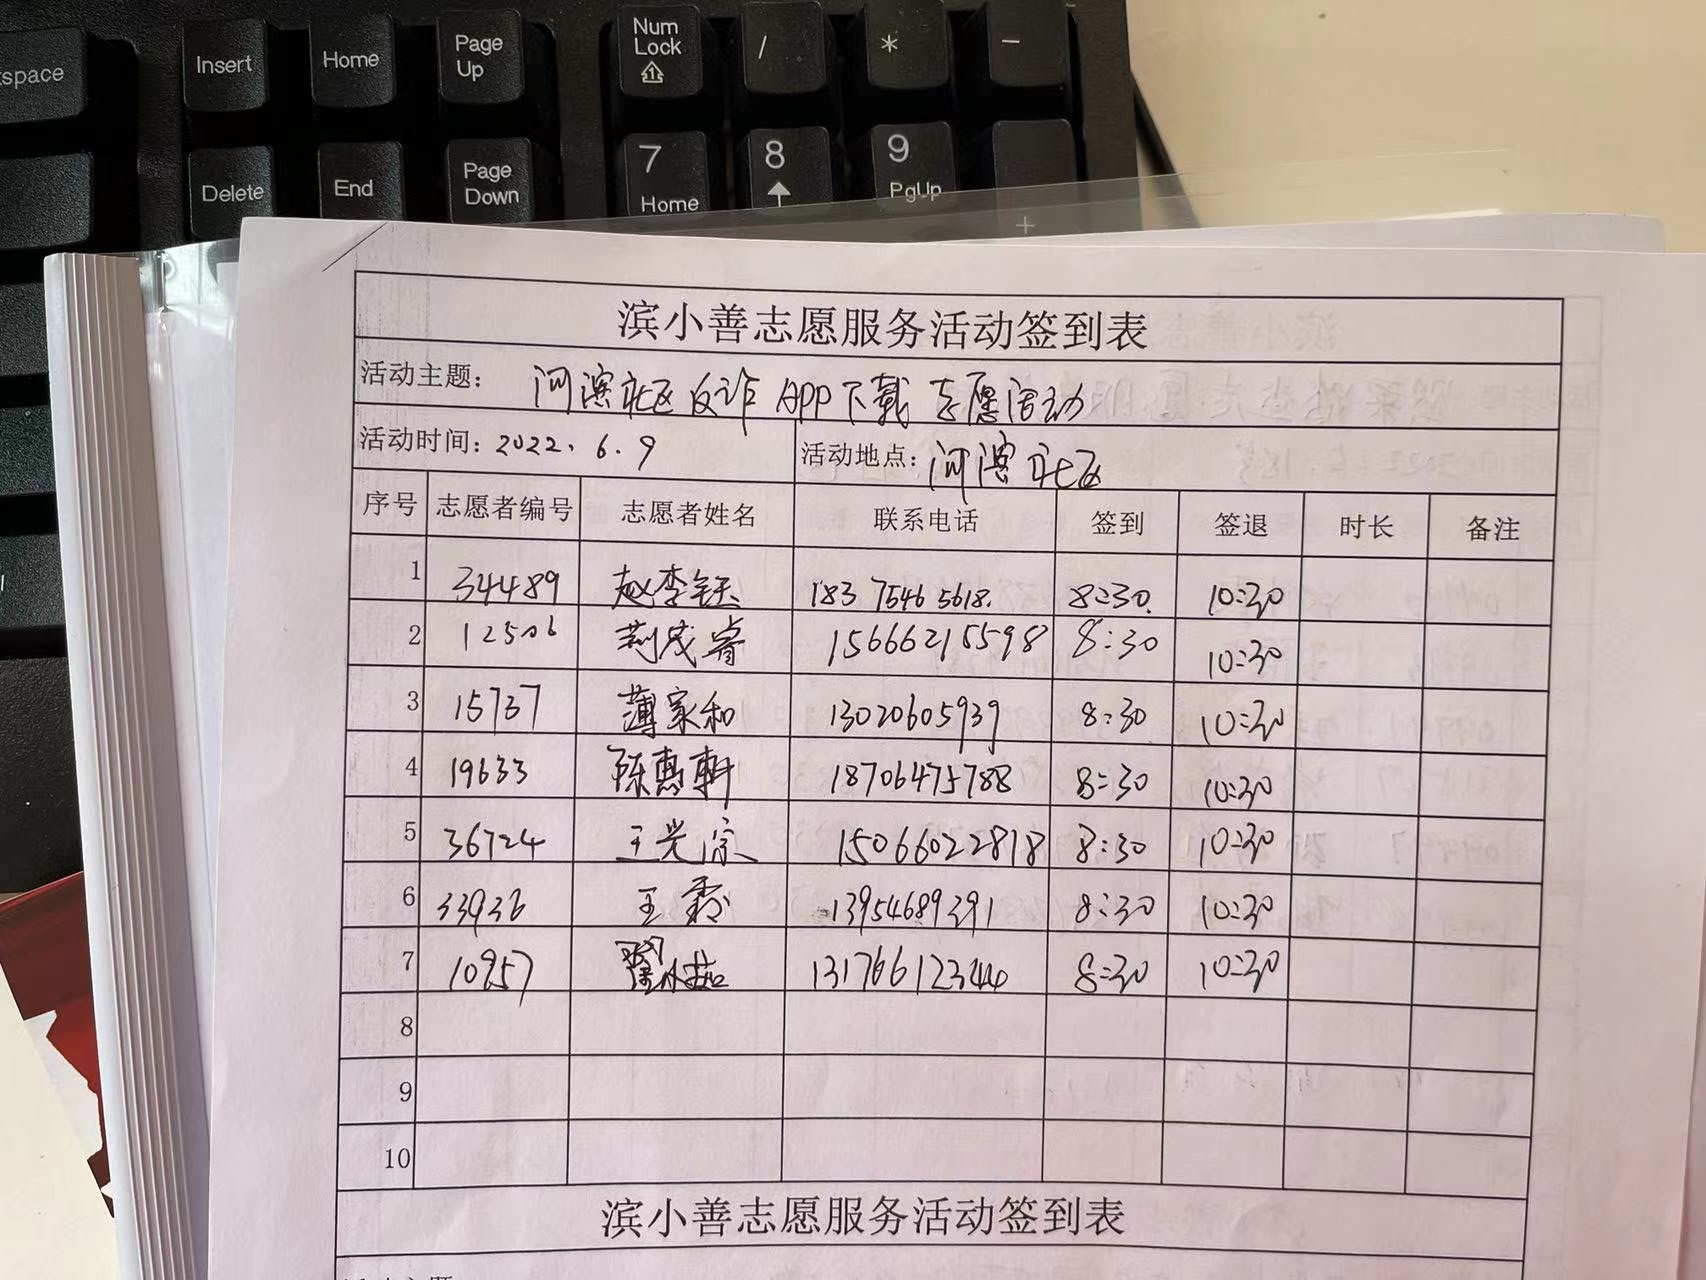 space
Insert
Home
Page Up
Num Lock
/
*
-
Delete
End
Page Down
7 Home
8
9 PgUp
+
滨小善志愿服务活动签到表
活动主题: 河滨社区反诈APP下载志愿活动
活动时间: 2022.6.9 活动地点: 河滨社区
序号 志愿者编号 志愿者姓名 联系电话 签到 签退 时长 备注
1 34489 赵李钰 183 7546 5618. 8:30 10:30
2 12506 荆成睿 15666215598 8:30 10:30
3 15737 薄家和 13020605939 8:30 10:30
4 19633 陈惠轩 18706475788 8:30 10:30
5 36724 王光宗 15066022818 8:30 10:30
6 33936 王 13954689391 8:30 10:30
7 10957 13176612344 8:30 10:30
8
9
10
滨小善志愿服务活动签到表